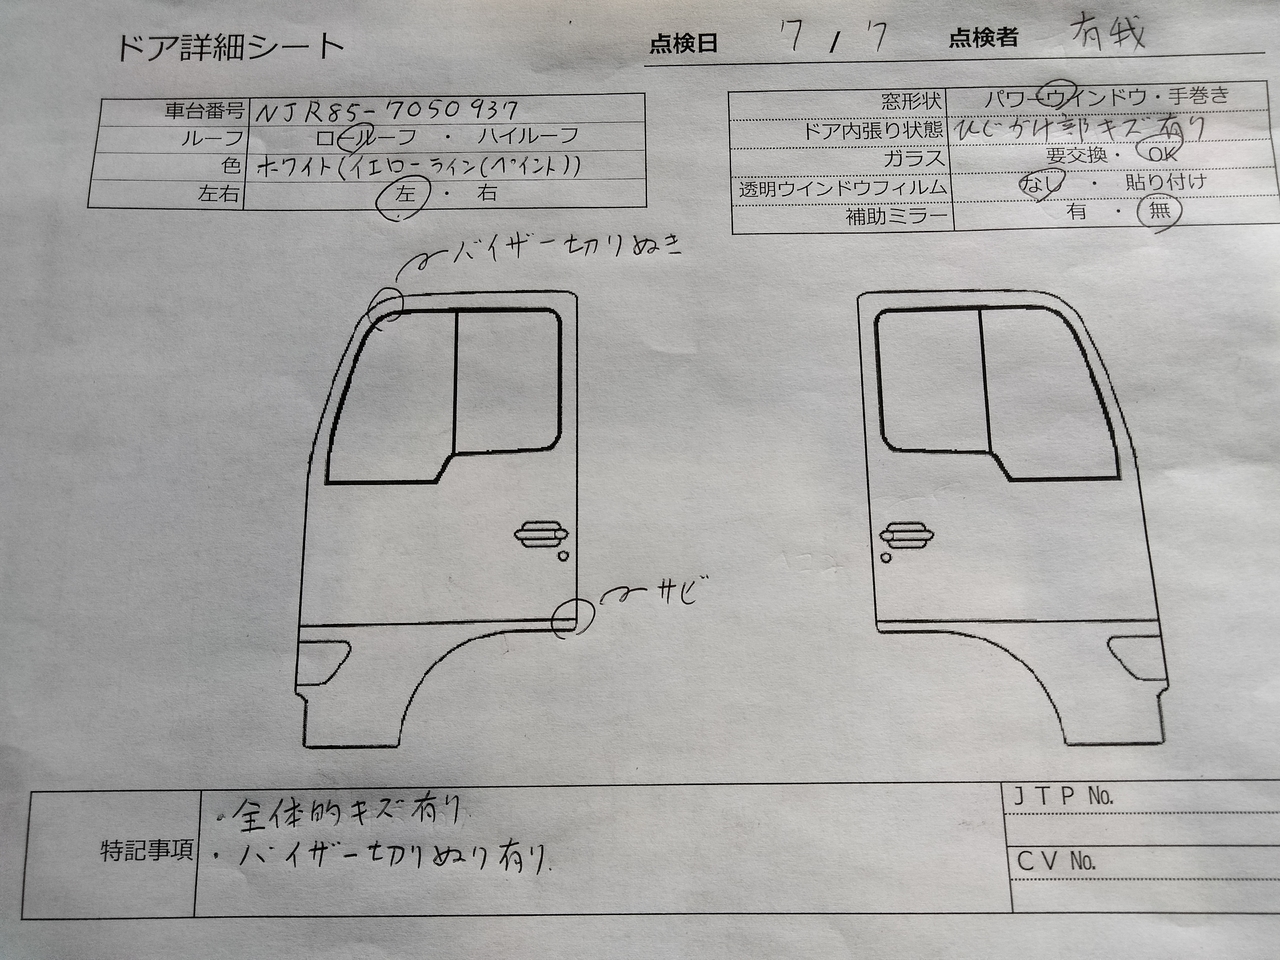 ドア詳細シート
点検日 7/7 点検者 有我
車台番号 NJR85-7050937
ルーフ ロールーフ ・ ハイルーフ
色 ホワイト(イエローライン(ペイント))
左右 左 ・ 右
窓形状 パワーウインドウ・手巻き
ドア内張り状態 ひじかけ部キズ有り
ガラス 要交換・ OK
透明ウインドウフィルム なし ・ 貼り付け
補助ミラー 有 ・ 無
バイザー切りぬき
サビ
特記事項
・全体的キズ有り
・バイザー切りぬり有り.
JTP No.
CV No.